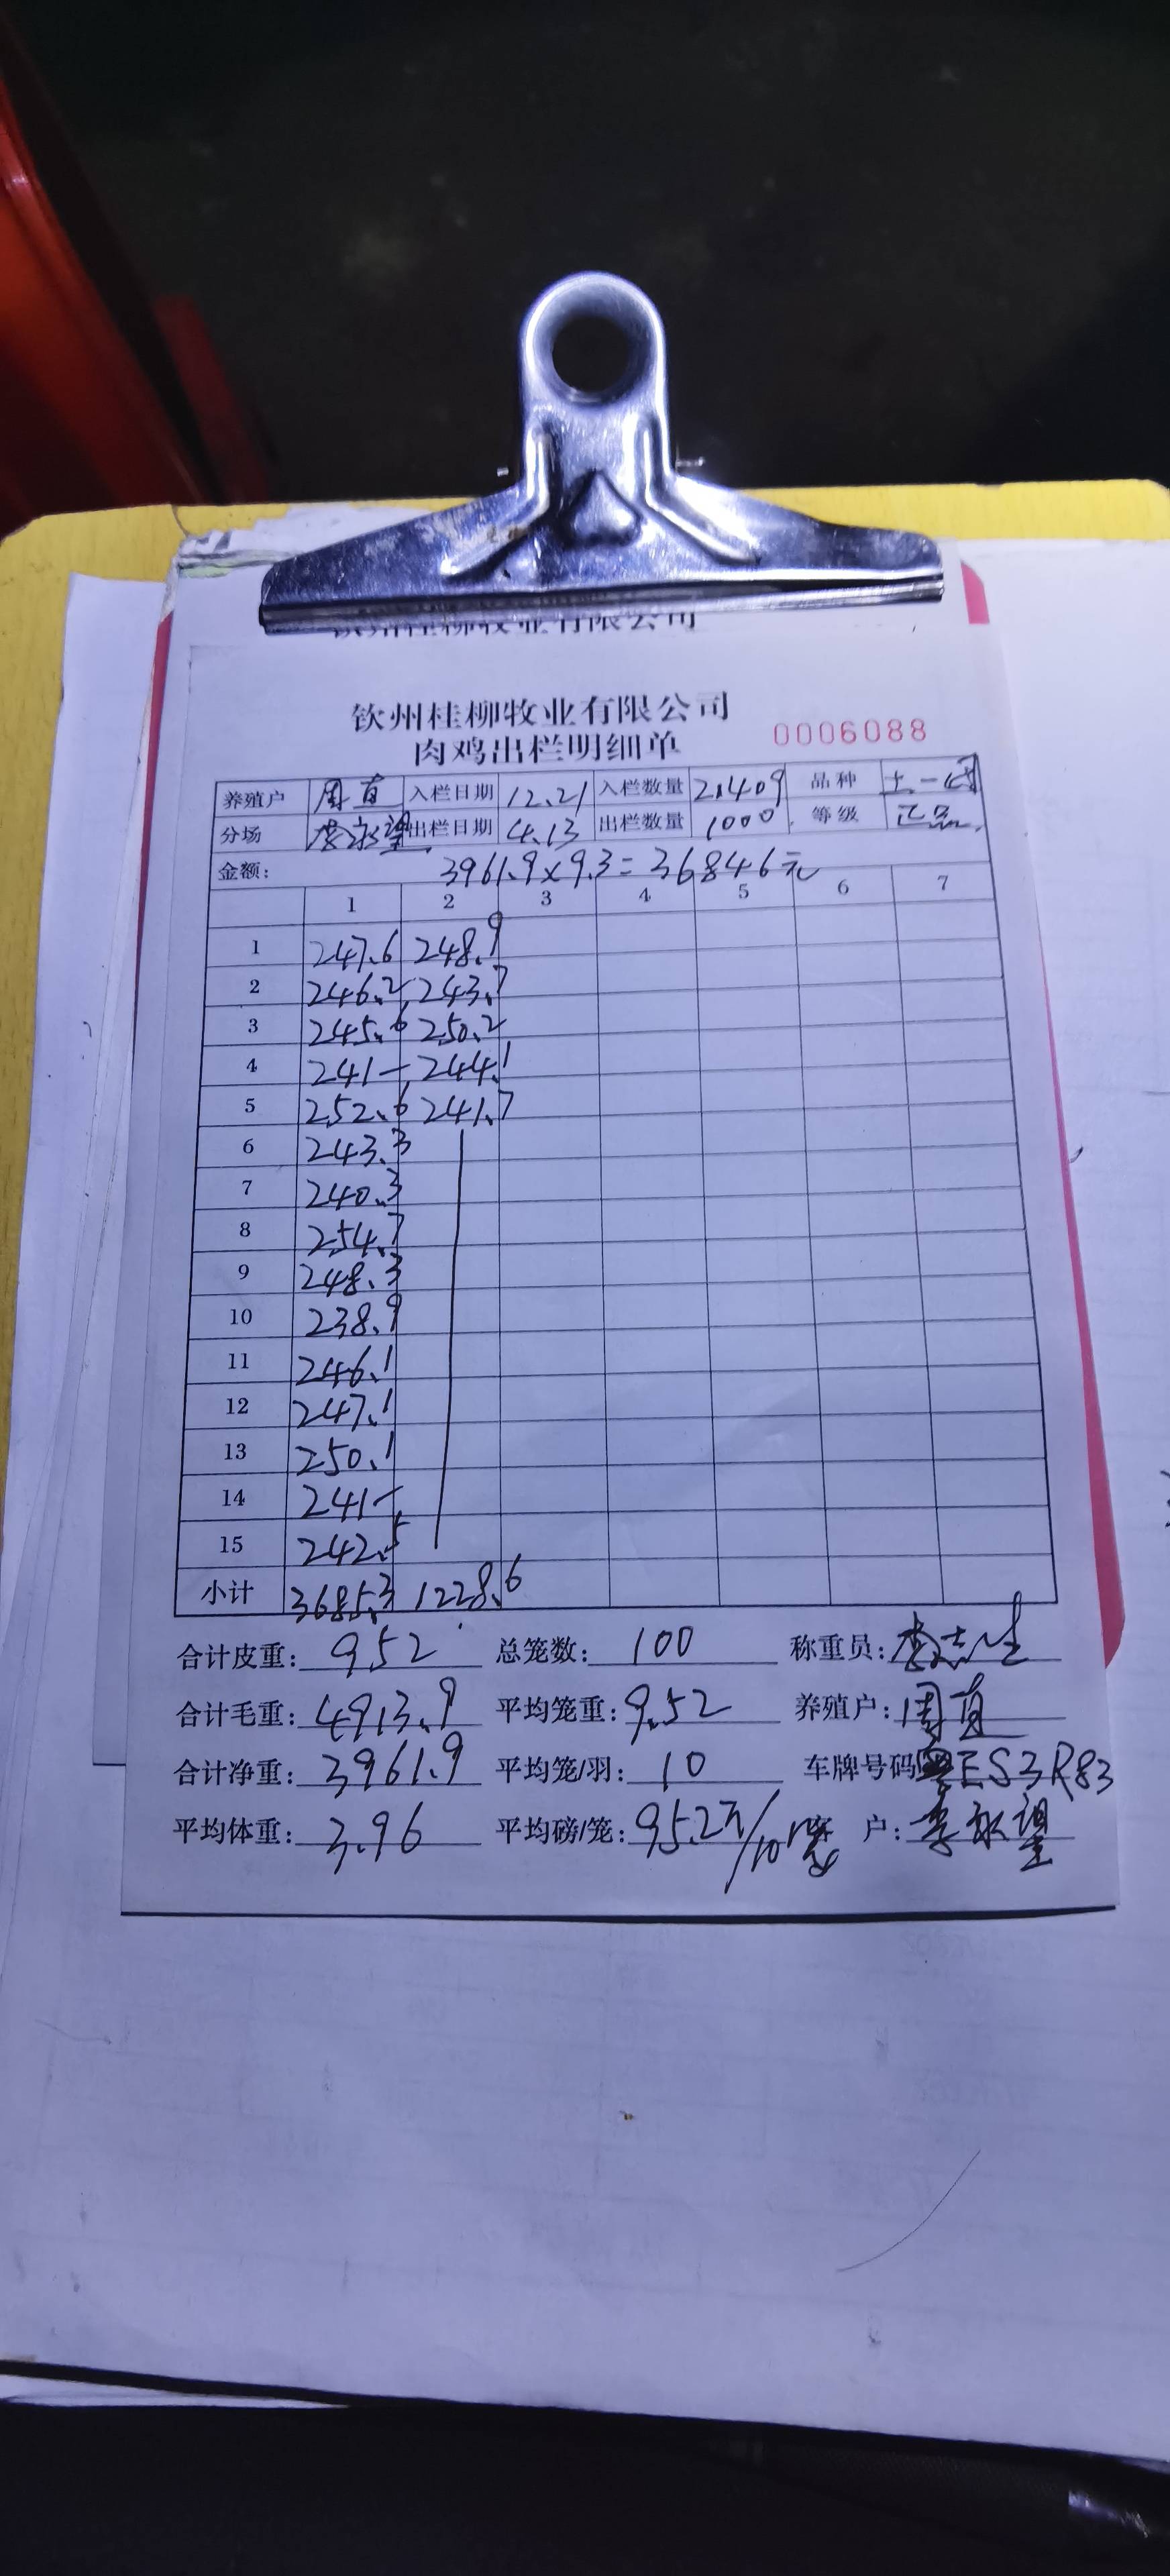 钦州桂柳牧业有限公司
钦州桂柳牧业有限公司
肉鸡出栏明细单 0006088
养殖户 周直 入栏日期 12.21 入栏数量 21409 品种 土一
分场 出栏日期 4.13 出栏数量 1000 等级 正品
金额: 3961.9×9.3=36846元
1 2 3 4 5 6 7
1 247.6 248.9
2 246.2 243.7
3 245.6 250.2
4 241- 244.1
5 252.6 241.7
6 243.3
7 240.3
8 254.7
9 248.3
10 238.9
11 246.1
12 247.1
13 250.1
14 241-
15 242.5
小计 3685.3 1228.6
合计皮重: 952 总笼数: 100 称重员: 李志生
合计毛重: 4913.9 平均笼重: 9.52 养殖户: 周直
合计净重: 3961.9 平均笼/羽: 10 车牌号码 粤ES3R83
平均体重: 3.96 平均磅/笼: 95.2元/10 户: 李永望